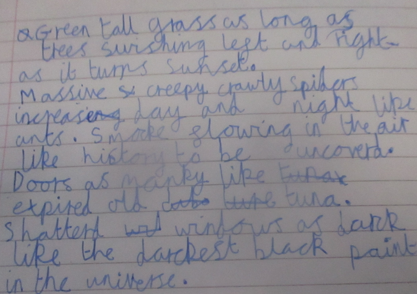 Green tall grass as long as
trees swishing left and right
as it turns sunset.
Massive creepy crawly spiders
increaseng day and night like
ants. Smoke glowing in the air
like history to be uncoverd.
Doors as manky like
expired old tuna.
Shatterd windows as dark
like the darckest black paint
in the universe.